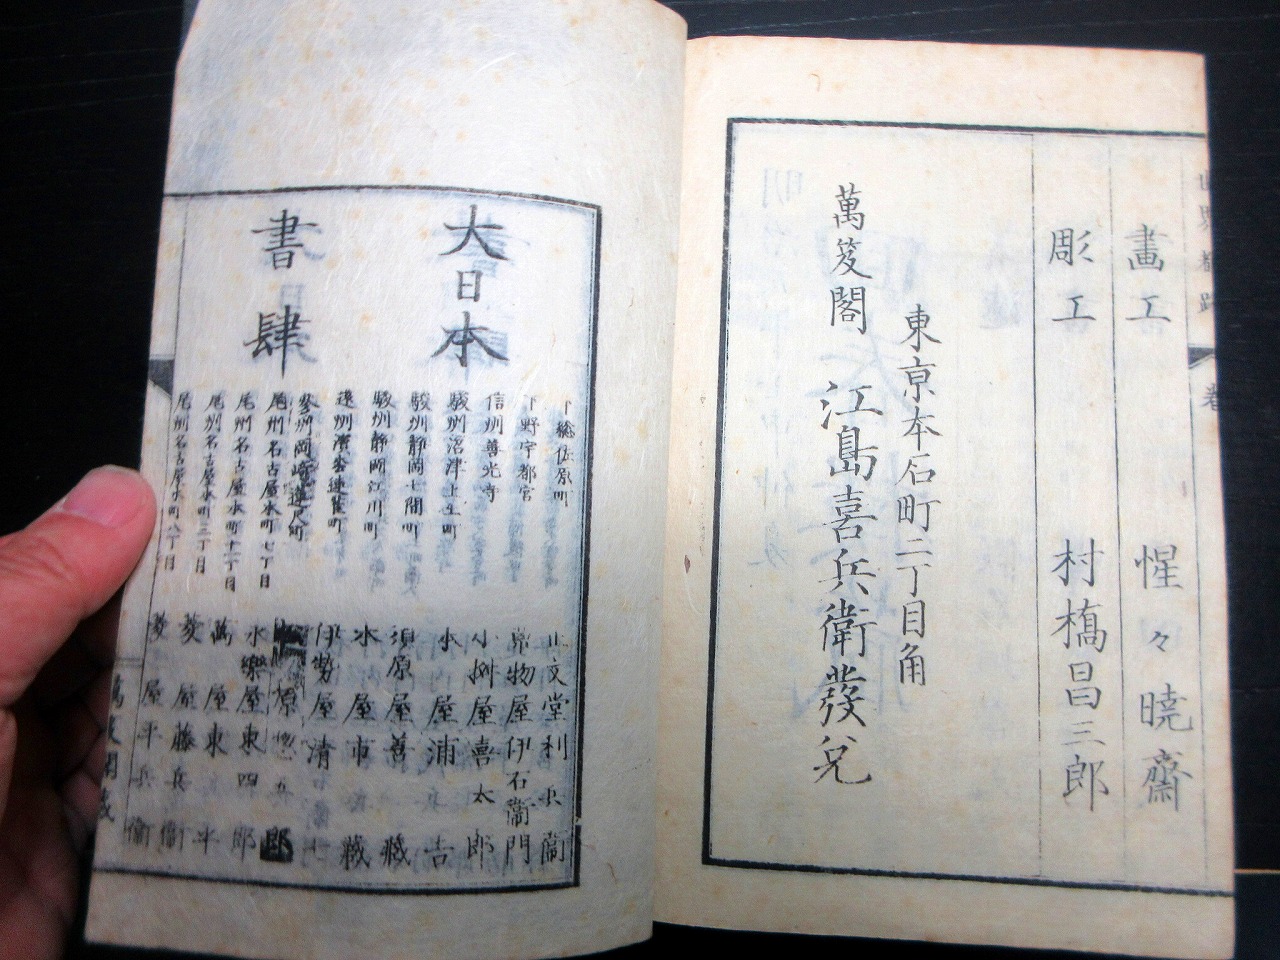 畫工 惺々暁齋
彫工 村橋昌三郎
東京本石町二丁目角
萬笈閣 江島喜兵衛發兌
大日本
書肆
下総佐原町 正文堂利兵衛
下野宇都宮 荒物屋伊右衛門
信州善光寺 小桝屋喜太郎
駿州沼津上土町 本屋浦吉
駿州静岡七間町 須原屋善蔵
駿州静岡江川町 本屋市蔵
遠州濱松連雀町 伊勢屋清七
参州岡崎連尺町 原
尾州名古屋本町七丁目 永樂屋東四郎
尾州名古屋本町十二丁目 萬屋東平
尾州名古屋本町三丁目 菱屋藤兵衛
尾州名古屋本町八丁目 菱屋平兵衛
萬笈閣蔵